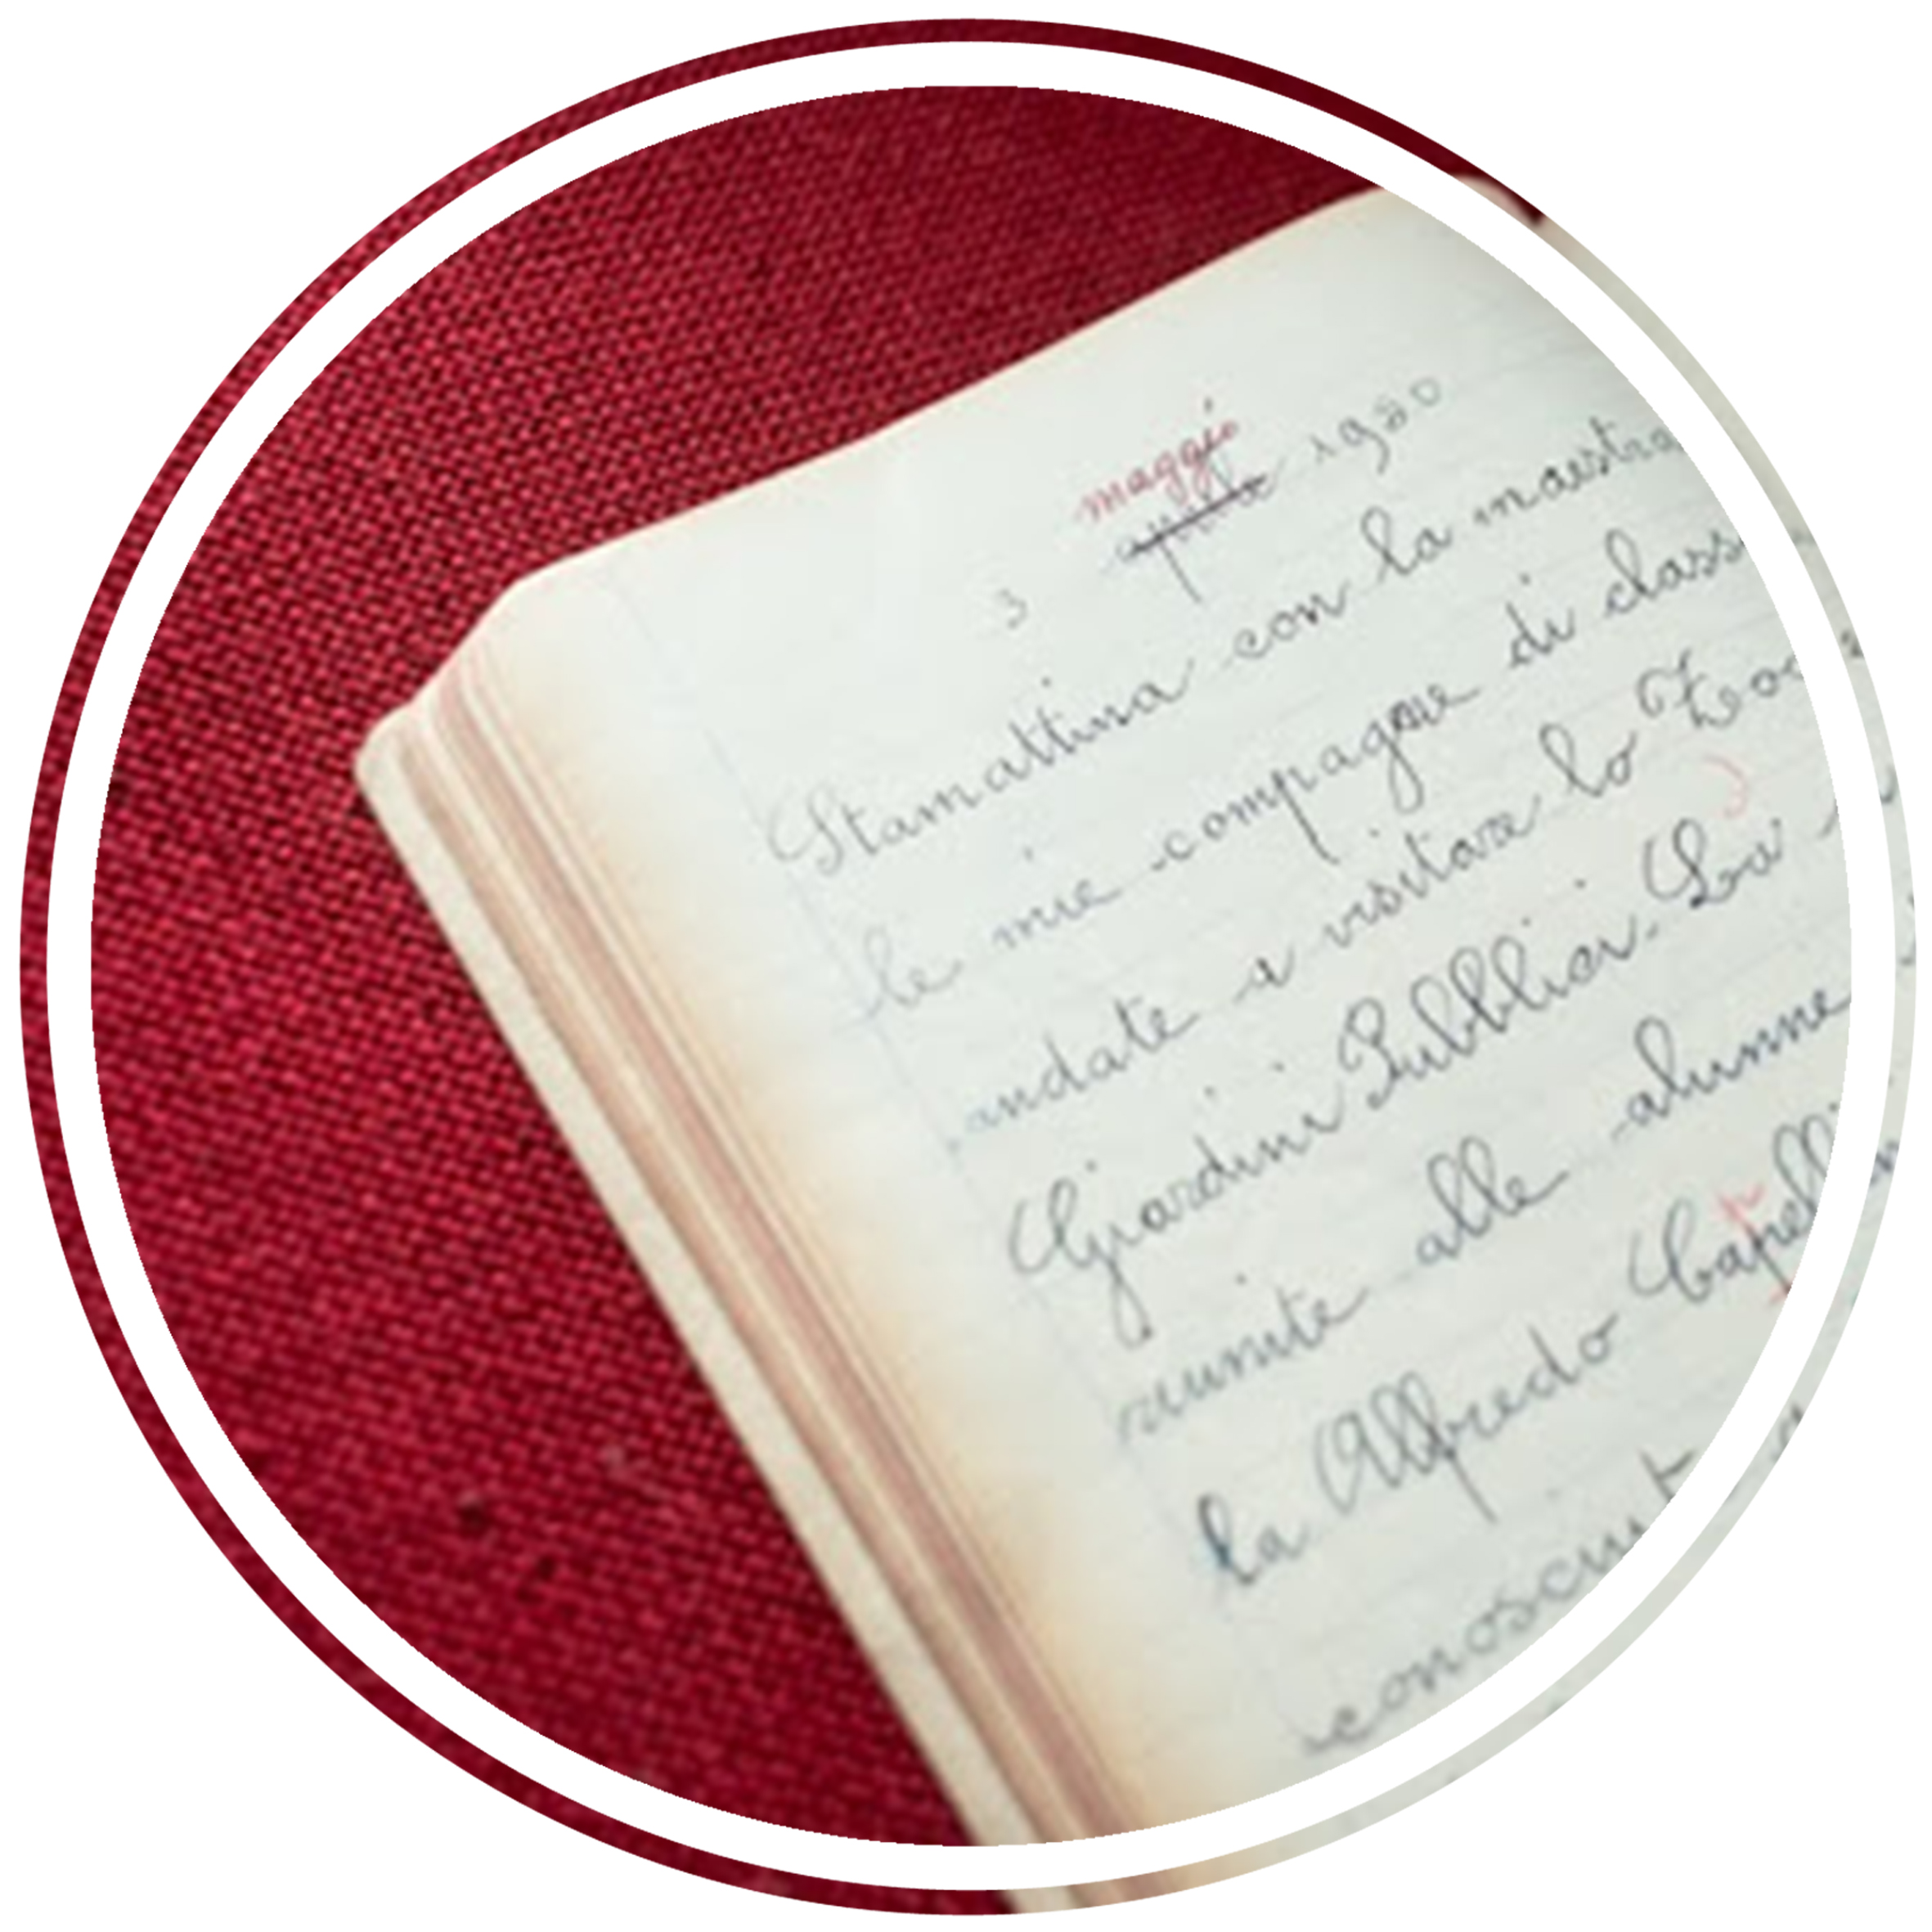 maggio
3 aprile 1930
Stamattina con la maestra
le mie compagne di class
andate a visitare lo Zoo
Giardini Pubblici. La
riunite alle alunne
la Alfredo Capell
conosciut